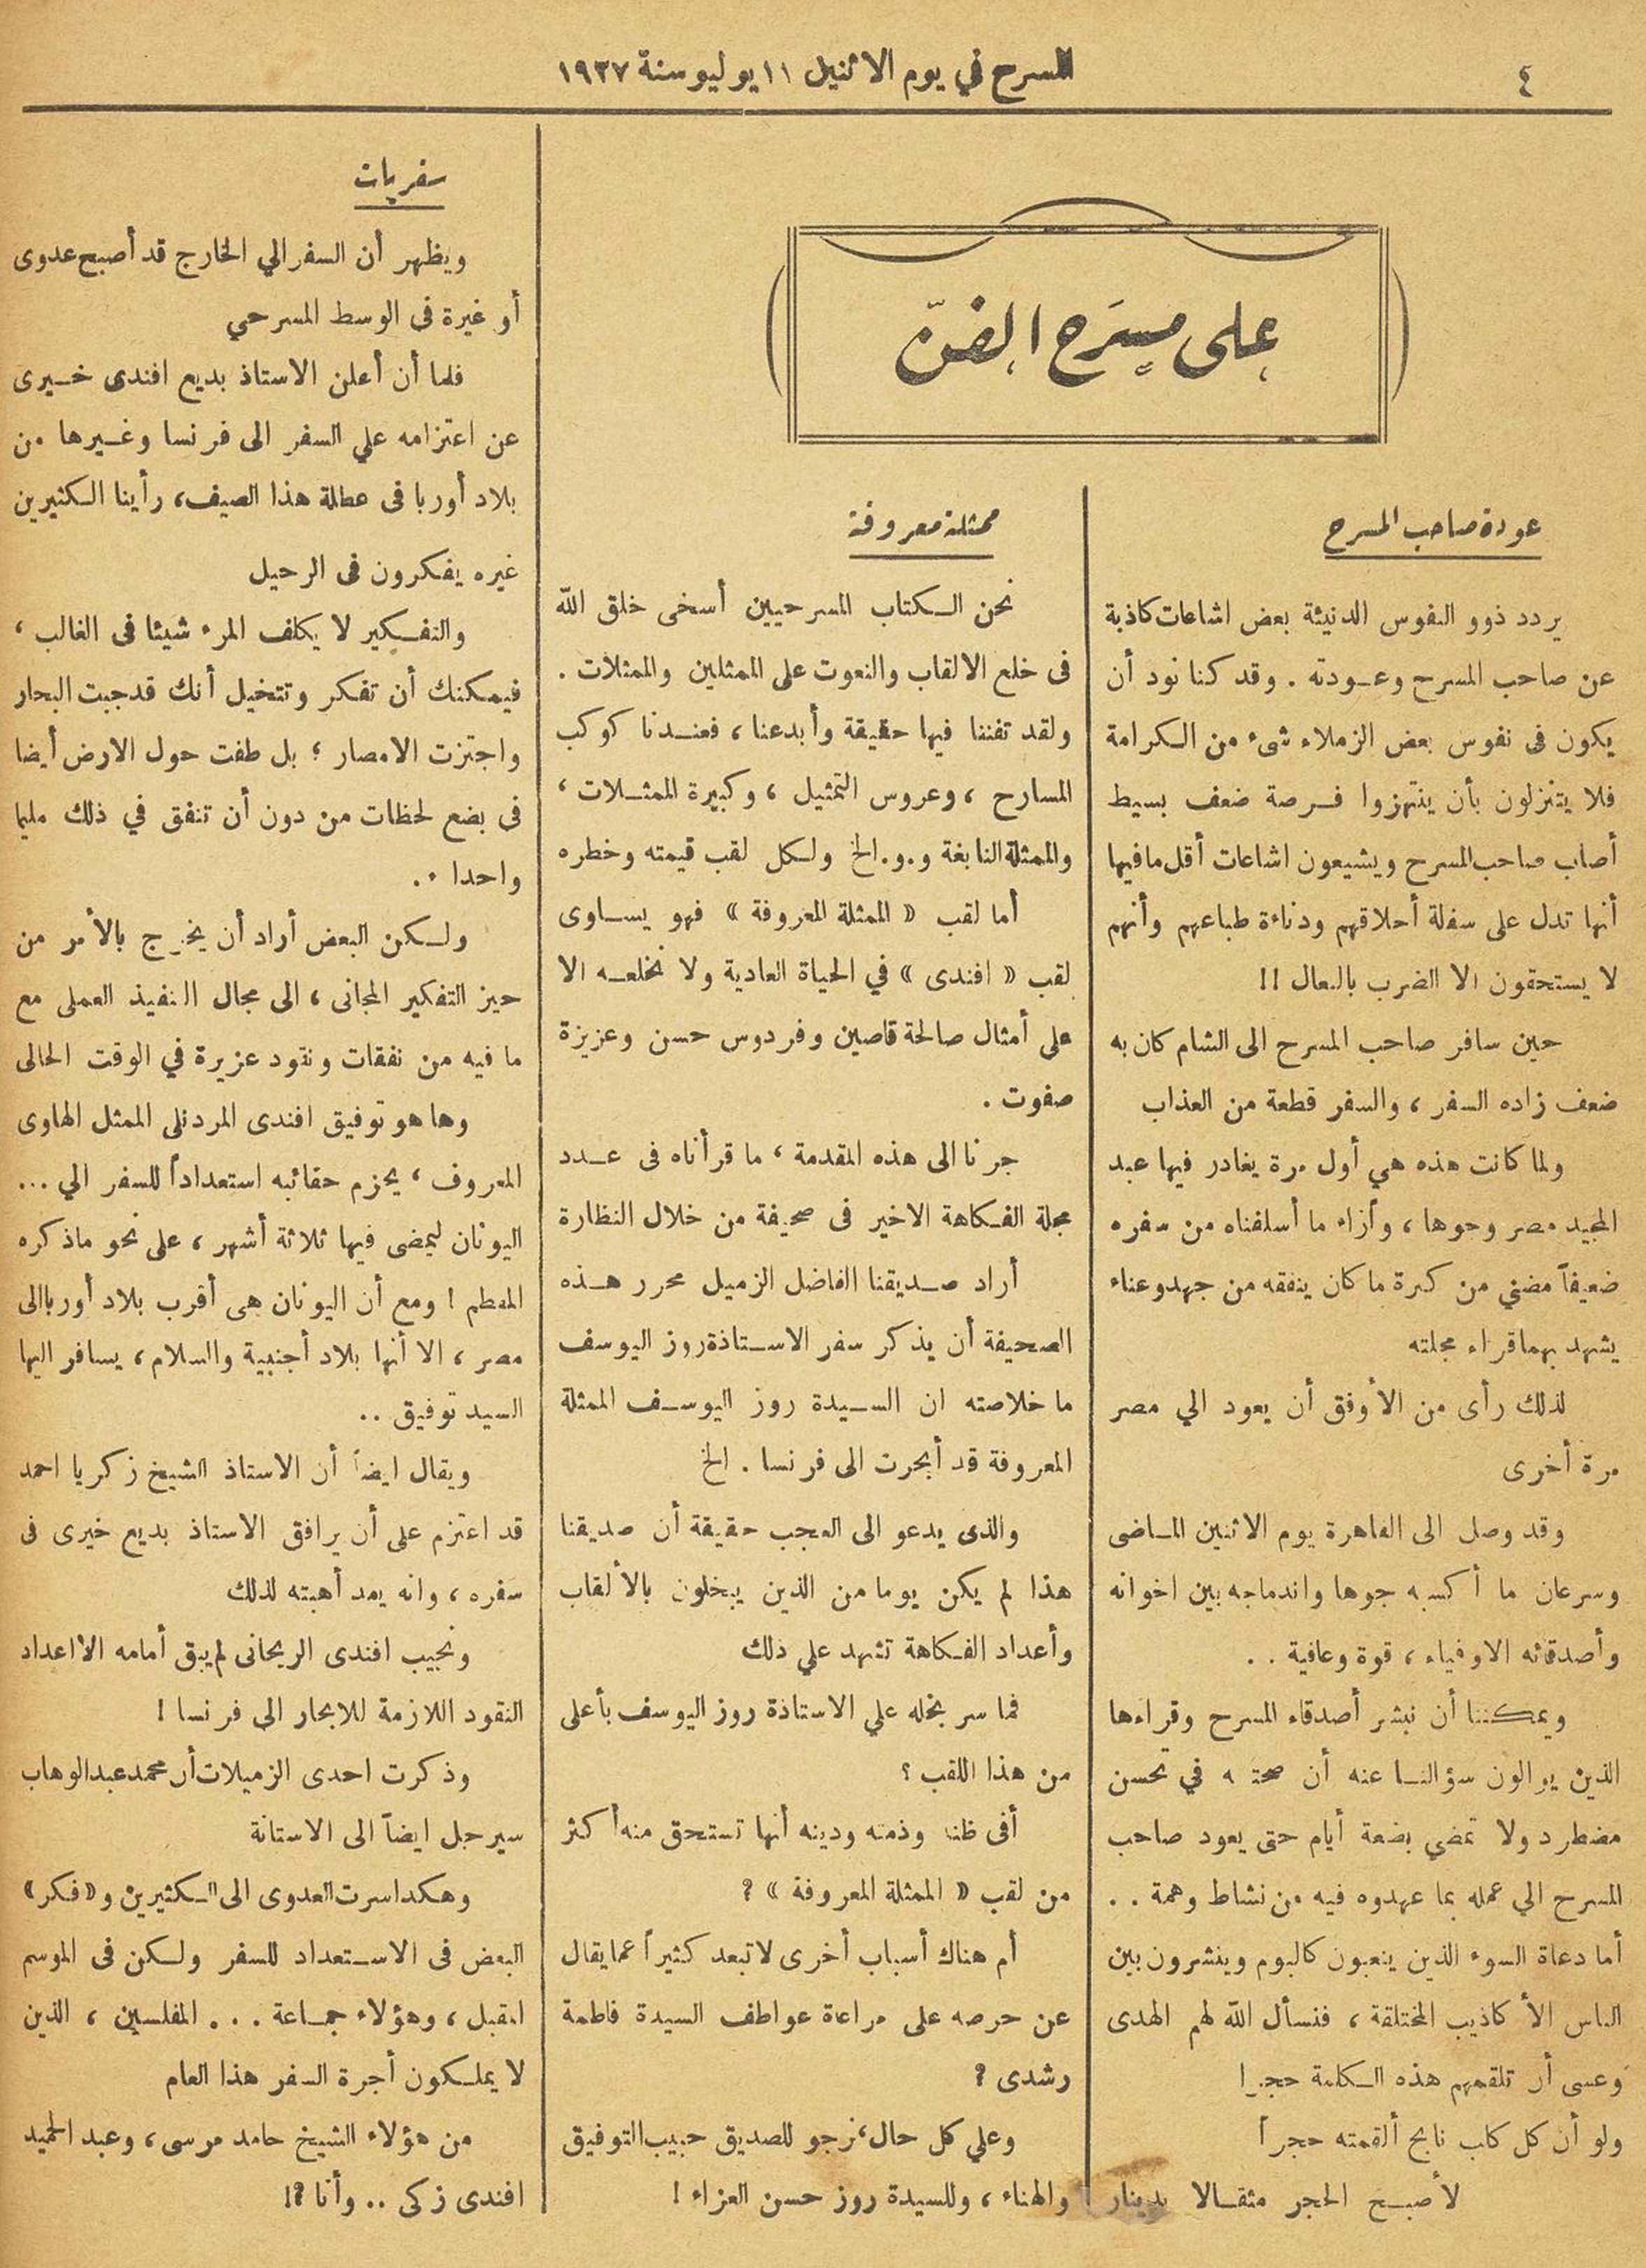 ٤
المسرح في يوم الاثنين ١١ يوليو سنة ١٩٢٧
على مسرح الفن
عودة صاحب المسرح
يردد ذوو النفوس الدنيئة بعض اشاعات كاذبة
عن صاحب المسرح وعودته . وقد كنا نود أن
يكون فى نفوس بعض الزملاء شىء من الكرامة
فلا يتنزلون بأن ينتهزوا فرصة ضعف بسيط
أصاب صاحب المسرح ويشيعون اشاعات أقل ما فيها
أنها تدل على سفلة أحلاقهم ودناءة طباعهم وأنهم
لا يستحقون الا الضرب بالنعال !!
حين سافر صاحب المسرح الى الشام كان به
ضعف زاده السفر ، والسفر قطعة من العذاب
ولما كانت هذه هي أول مرة يغادر فيها عبد
المجيد مصر وجوها ، وأزاء ما أسلفناه من سفره
ضعيفاً مضني من كثرة ما كان ينفقه من جهد وعناء
يشهد بهما قراء مجلته
لذلك رأى من الأوفق أن يعود الي مصر
مرة أخرى
وقد وصل الى القاهرة يوم الاثنين الماضى
وسرعان ما أكسبه جوها واندماجه بين اخوانه
وأصدقائه الاوفياء ، قوة وعافية . .
ويمكننا أن نبشر أصدقاء المسرح وقراءها
الذين يوالون سؤالنا عنه أن صحته في تحسن
مضطرد ولا تمضي بضعة أيام حتى يعود صاحب
المسرح الي عمله بما عهدوه فيه من نشاط وهمة . .
أما دعاة السوء الذين ينعبون كالبوم وينشرون بين
الناس الأكاذيب المختلقة ، فنسأل الله لهم الهدى
وعسى أن تلقمهم هذه الكلمة حجرا
ولو أن كل كلب نابح ألقمته حجراً
لأصبح الحجر مثقالا بدينار
ممثلة معروفة
نحن الكتاب المسرحيين أسخى خلق الله
فى خلع الالقاب والنعوت على الممثلين والممثلات .
ولقد تفننا فيها حقيقة وأبدعنا ، فعندنا كوكب
المسارح ، وعروس التمثيل ، وكبيرة الممثلات ،
والممثلة النابغة و.و.الخ ولكل لقب قيمته وخطره
أما لقب « الممثلة المعروفة » فهو يساوى
لقب « افندى » في الحياة العادية ولا نخلعه الا
على أمثال صالحة قاصين وفردوس حسن وعزيزة
صفوت .
جرنا الى هذه المقدمة ، ما قرأناه فى عدد
مجلة الفكاهة الاخير فى صحيفة من خلال النظارة
أراد صديقنا الفاضل الزميل محرر هذه
الصحيفة أن يذكر سفر الاستاذة روز اليوسف
ما خلاصته ان السيدة روز اليوسف الممثلة
المعروفة قد أبحرت الى فرنسا . الخ
والذى يدعو الى العجب حقيقة أن صديقنا
هذا لم يكن يوما من الذين يبخلون بالألقاب
وأعداد الفكاهة تشهد علي ذلك
فما سر بخله علي الاستاذة روز اليوسف بأعلى
من هذا اللقب ؟
أفى ظنه وذمته ودينه أنها تستحق منه أكثر
من لقب « الممثلة المعروفة » ؟
أم هناك أسباب أخرى لا تبعد كثيراً عما يقال
عن حرصه على مراعاة عواطف السيدة فاطمة
رشدى ؟
وعلي كل حال ، نرجو للصديق حبيب التوفيق
والهناء ، وللسيدة روز حسن العزاء !
سفريات
ويظهر أن السفر الي الخارج قد أصبح عدوى
أو غيرة فى الوسط المسرحي
فلما أن أعلن الاستاذ بديع افندى خيرى
عن اعتزامه علي السفر الى فرنسا وغيرها من
بلاد أوربا فى عطلة هذا الصيف ، رأينا الكثيرين
غيره يفكرون فى الرحيل
والتفكير لا يكلف المرء شيئا فى الغالب ،
فيمكنك أن تفكر وتتخيل أنك قد جبت البحار
واجتزت الامصار ؛ بل طفت حول الارض أيضا
فى بضع لحظات من دون أن تنفق في ذلك مليما
واحدا . .
ولكن البعض أراد أن يخرج بالأمر من
حيز التفكير المجانى ، الى مجال التنفيذ العملى مع
ما فيه من نفقات ونقود عزيزة في الوقت الحالى
وها هو توفيق افندى المردنلى الممثل الهاوى
المعروف ، يحزم حقائبه استعداداً للسفر الي ...
اليونان ليمضى فيها ثلاثة أشهر ، على نحو ما ذكره
المقطم ! ومع أن اليونان هى أقرب بلاد أوربا الى
مصر ، الا أنها بلاد أجنبية والسلام ، يسافر اليها
السيد توفيق . .
ويقال ايضاً أن الاستاذ الشيخ زكريا احمد
قد اعتزم على أن يرافق الاستاذ بديع خيرى فى
سفره ، وانه يعد أهبته لذلك
ونجيب افندى الريحانى لم يبق أمامه الا اعداد
النقود اللازمة للابحار الى فرنسا !
وذكرت احدى الزميلات أن محمد عبد الوهاب
سيرحل ايضاً الى الاستانة
وهكدا سرت العدوى الى الكثيرين و«فكر»
البعض فى الاستعداد للسفر ولكن فى الموسم
المقبل ، وهؤلاء جماعة . . . المفلسين ، الذين
لا يملكون أجرة السفر هذا العام
من هؤلاء الشيخ حامد مرسى ، وعبد الحميد
افندى زكى .. وأنا ؟!